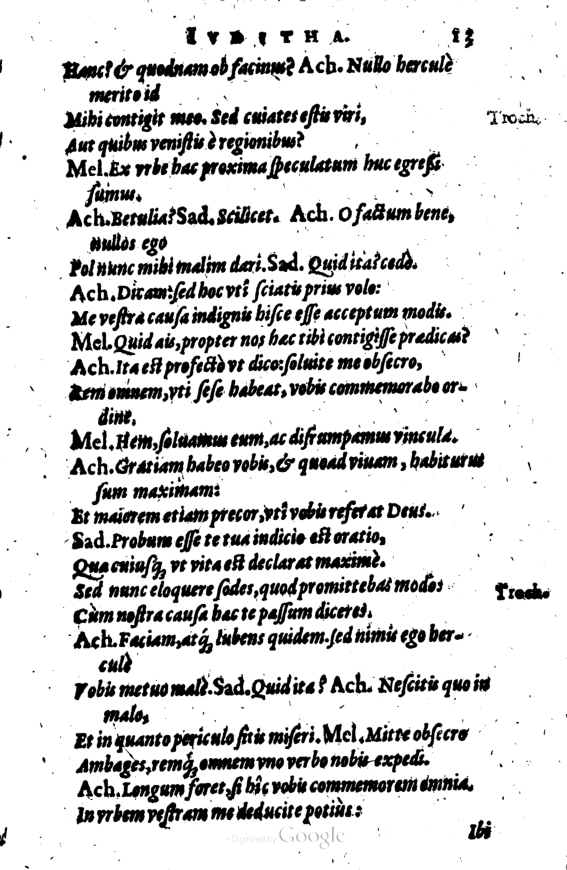 IVDITHA. 13
Hanc? & quodnam ob facinus? Ach. Nullo herculè
merito id
Mihi contigit meo. Sed cuiates estis viri, Troch.
Aut quibus venistis è regionibus?
Mel. Ex vrbe hac proxima speculatum huc egressi
sumus.
Ach. Betulia? Sad. Scilicet. Ach. O factum bene,
nullos ego
Pol nunc mihi malim dari. Sad. Quid ita? cedo.
Ach. Dicam: sed hoc vti sciatis prius volo:
Me vestra causa indignis hisce esse acceptum modis.
Mel. Quid ais, propter nos hac tibi contigisse prædicas?
Ach. Ita est profectò vt dico: soluite me obsecro,
Rem omnem, vti sese habeat, vobis commemorabo or-
dine.
Mel. Hem, soluamus eum, ac disrumpamus vincula.
Ach. Gratiam habeo vobis, & quoad viuam, habiturus
sum maximam:
Et maiorem etiam precor, vti vobis referat Deus.
Sad. Probum esse te tua indicio est oratio,
Qua cuiusq; vt vita est declarat maximè.
Sed nunc eloquere sodes, quod promittebas modo: Troch.
Cùm nostra causa hac te passum diceres.
Ach. Faciam, atq; lubens quidem. sed nimis ego her-
culè
Vobis metuo malè. Sad. Quid ita? Ach. Nescitis quo in
malo,
Et in quanto periculo sitis miseri. Mel. Mitte obsecro
Ambages, remq; omnem vno verbo nobis expedi.
Ach. Longum foret, si hîc vobis commemorem omnia.
In vrbem vestram me deducite potiùs:
Ibi
Digitized by Google